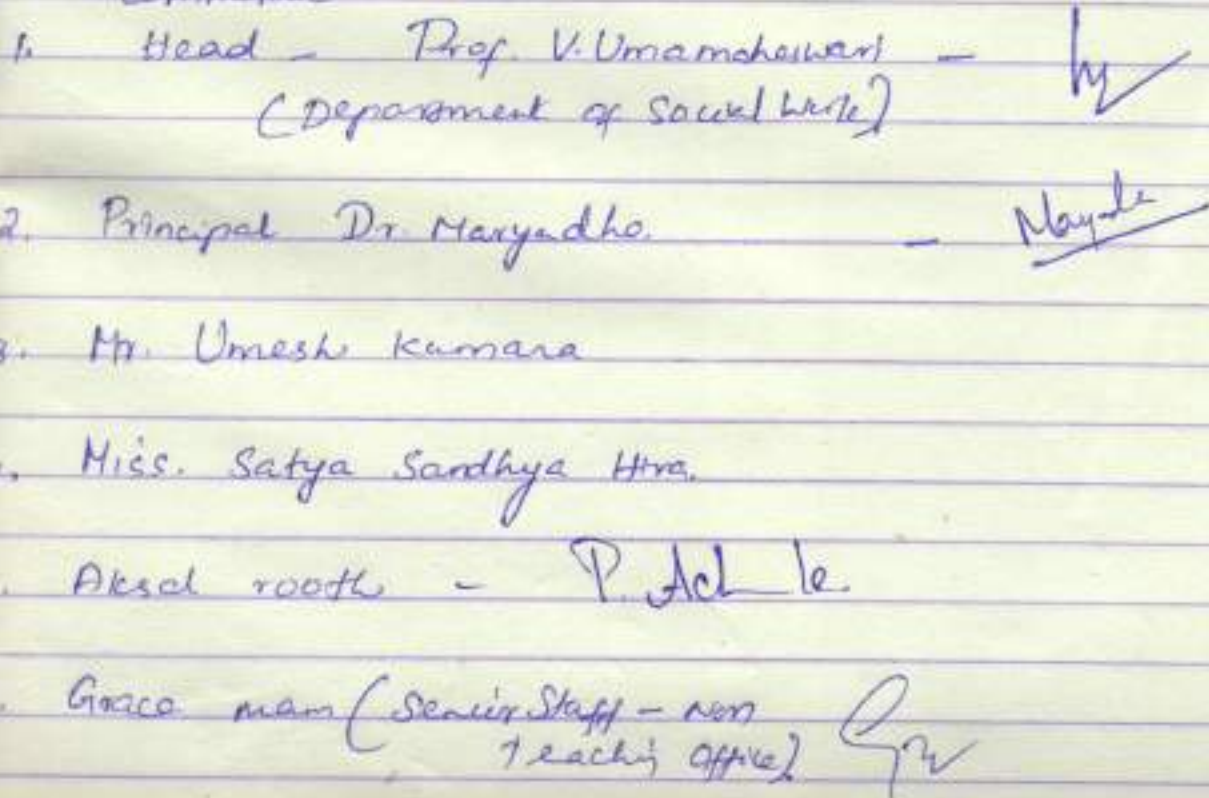 1. Head - Prof. V. Umamaheswari -
(Department of Social Work)
2. Principal Dr. Maryadho. -
3. Mr. Umesh Kumara
Miss. Satya Sandhya Hira.
Aksel rooth -
Grace mam (Senior Staff - non
Teaching office)